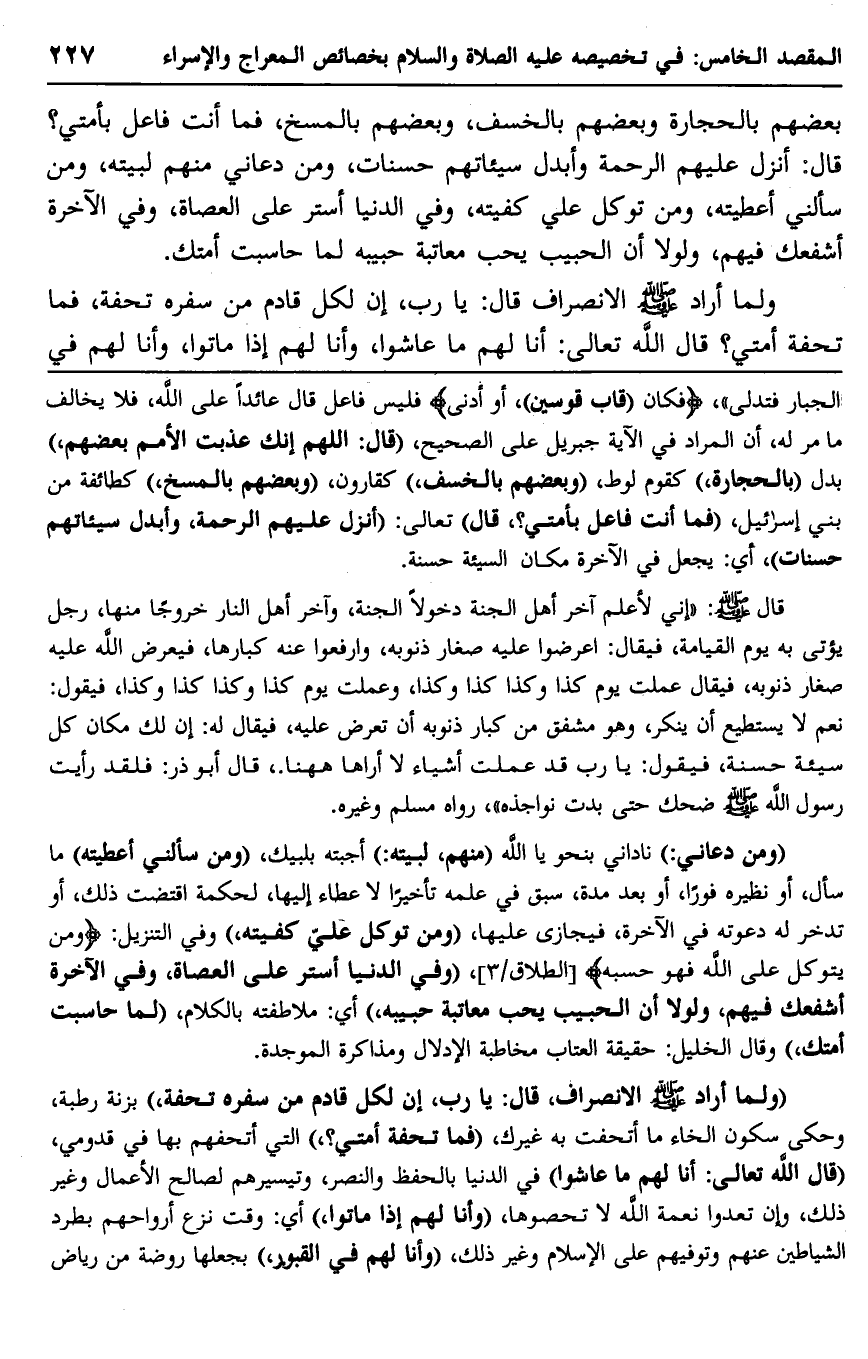 المقصد الخامس: في تخصيصه عليه الصلاة والسلام بخصائص المعراج والإسراء ٢٢٧
بعضهم بالحجارة وبعضهم بالخسف، وبعضهم بالمسخ، فما أنت فاعل بأمتي؟
قال: أنزل عليهم الرحمة وأبدل سيئاتهم حسنات، ومن دعاني منهم لبيته، ومن
سألني أعطيته، ومن توكل علي كفيته، وفي الدنيا أستر على العصاة، وفي الآخرة
أشفعك فيهم، ولولا أن الحبيب يحب معاتبة حبيبه لما حاسبت أمتك.
ولما أراد ﷺ الانصراف قال: يا رب، إن لكل قادم من سفره تحفة، فما
تحفة أمتي؟ قال اللَّه تعالى: أنا لهم ما عاشوا، وأنا لهم إذا ماتوا، وأنا لهم في
الجبار فتدلى»، ﴿فكان (قاب قوسين)، أو أدنى﴾ فليس فاعل قال عائداً على اللَّه، فلا يخالف
ما مر له، أن المراد في الآية جبريل على الصحيح، (قال: اللهم إنك عذبت الأمم بعضهم،)
بدل (بالحجارة،) كقوم لوط، (وبعضهم بالخسف،) كقارون، (وبعضهم بالمسخ،) كطائفة من
بني إسرائيل، (فما أنت فاعل بأمتي؟، قال) تعالى: (أنزل عليهم الرحمة، وأبدل سيئاتهم
حسنات)، أي: يجعل في الآخرة مكان السيئة حسنة.
قال ﷺ: «إني لأعلم آخر أهل الجنة دخولاً الجنة، وآخر أهل النار خروجًا منها، رجل
يؤتى به يوم القيامة، فيقال: اعرضوا عليه صغار ذنوبه، وارفعوا عنه كبارها، فيعرض اللَّه عليه
صغار ذنوبه، فيقال عملت يوم كذا وكذا كذا وكذا، وعملت يوم كذا وكذا كذا وكذا، فيقول:
نعم لا يستطيع أن ينكر، وهو مشفق من كبار ذنوبه أن تعرض عليه، فيقال له: إن لك مكان كل
سيئة حسنة، فيقول: يا رب قد عملت أشياء لا أراها ههنا.، قال أبو ذر: فلقد رأيت
رسول اللَّه ﷺ ضحك حتى بدت نواجذه»، رواه مسلم وغيره.
(ومن دعاني:) ناداني بنحو يا اللَّه (منهم، لبيته:) أجبته بلبيك، (ومن سألني أعطيته) ما
سأل، أو نظيره فورًا، أو بعد مدة، سبق في علمه تأخيرًا لا عطاء إليها، لحكمة اقتضت ذلك، أو
تدخر له دعوته في الآخرة، فيجازى عليها، (ومن توكل عليّ كفيته،) وفي التنزيل: ﴿ومن
يتوكل على اللَّه فهو حسبه﴾ [الطلاق/٣]، (وفي الدنيا أستر على العصاة، وفي الآخرة
أشفعك فيهم، ولولا أن الحبيب يحب معاتبة حبيبه،) أي: ملاطفته بالكلام، (لما حاسبت
أمتك،) وقال الخليل: حقيقة العتاب مخاطبة الإدلال ومذاكرة الموجدة.
(ولما أراد ﷺ الانصراف، قال: يا رب، إن لكل قادم من سفره تحفة،) بزنة رطبة،
وحكى سكون الخاء ما أتحفت به غيرك، (فما تحفة أمتي؟،) التي أتحفهم بها في قدومي،
(قال اللَّه تعالى: أنا لهم ما عاشوا) في الدنيا بالحفظ والنصر، وتيسيرهم لصالح الأعمال وغير
ذلك، وإن تعدوا نعمة اللَّه لا تحصوها، (وأنا لهم إذا ماتوا،) أي: وقت نزع أرواحهم بطرد
الشياطين عنهم وتوفيهم على الإسلام وغير ذلك، (وأنا لهم في القبور،) بجعلها روضة من رياض